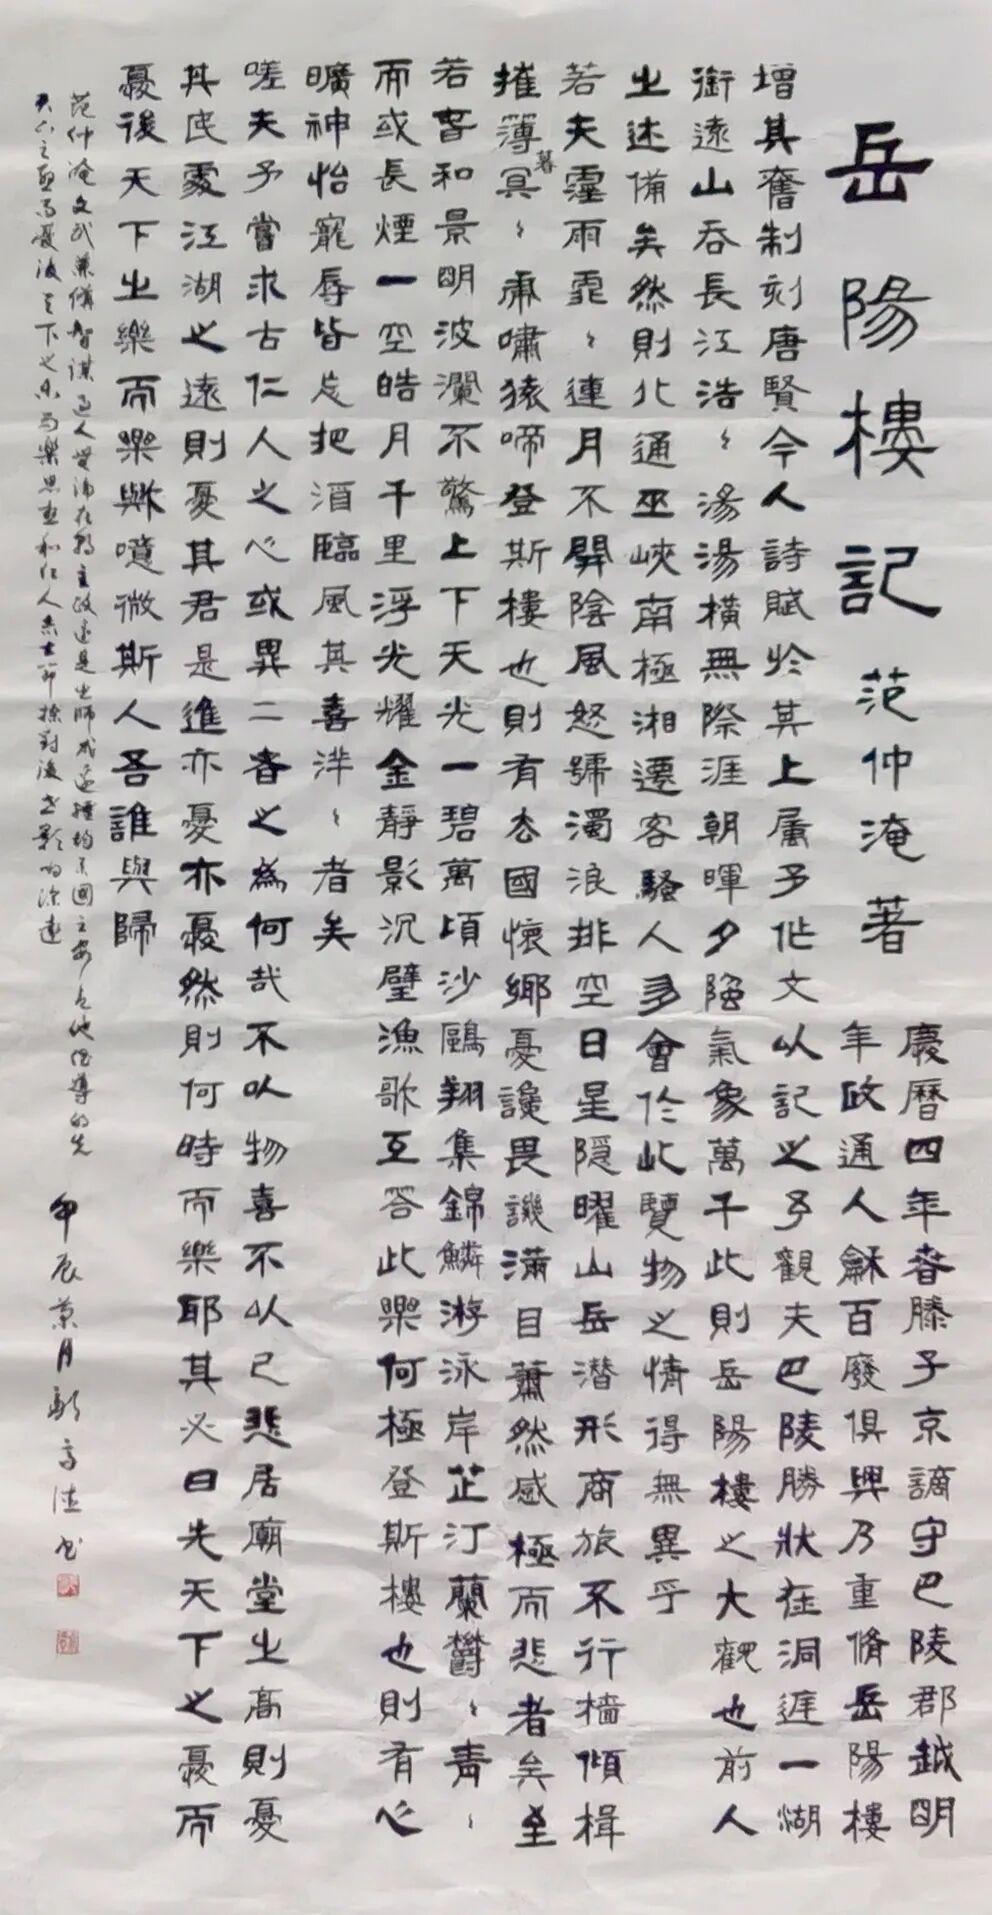 岳陽樓記 范仲淹著
慶曆四年春滕子京謫守巴陵郡越明
年政通人龢百廢俱興乃重脩岳陽樓
增其舊制刻唐賢今人詩賦於其上屬予作文以記之予觀夫巴陵勝狀在洞庭一湖
銜遠山吞長江浩〻湯湯橫無際涯朝暉夕陰氣象萬千此則岳陽樓之大觀也前人
之述備矣然則北通巫峽南極湘遷客騷人多會於此覽物之情得無異乎
若夫霪雨霏〻連月不開陰風怒號濁浪排空日星隱曜山岳潛形商旅不行檣傾楫
摧薄暮冥〻虎嘯猿啼登斯樓也則有去國懷鄉憂讒畏譏滿目蕭然感極而悲者矣至
若春和景明波瀾不驚上下天光一碧萬頃沙鷗翔集錦鱗游泳岸芷汀蘭鬱〻青〻
而或長煙一空皓月千里浮光耀金靜影沉璧漁歌互答此樂何極登斯樓也則有心
曠神怡寵辱皆忘把酒臨風其喜洋〻者矣
嗟夫予嘗求古仁人之心或異二者之為何哉不以物喜不以己悲居廟堂之高則憂
其民處江湖之遠則憂其君是進亦憂亦憂然則何時而樂耶其必曰先天下之憂而
憂後天下之樂而樂歟噫微斯人吾誰與歸
范仲淹文武兼備智謀過人無論在朝主政還是出師戍邊均系國之安危他倡導的先
天下之憂而憂後天下之樂而樂思想和仁人志士節操對後世影响深遠
甲辰 月 高德书